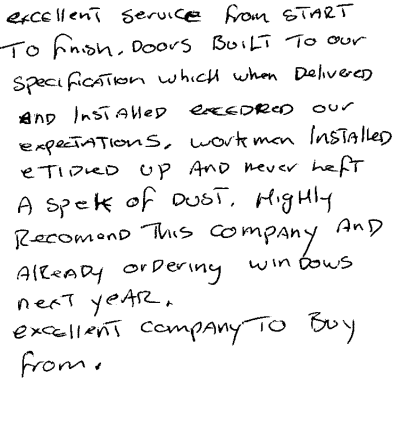 excellent service from START
To finish. DOORS BUILT To our
specification which when Delivered
AND INSTAlled exceDReD our
expectATIONS, workmen INSTAllED
e TIDIeD UP AND never left
A spek of DUST. HigHly
Recomend THIS company AnD
AlReADy ordering winDOWS
next yeAR.
excellenT company To Buy
from.